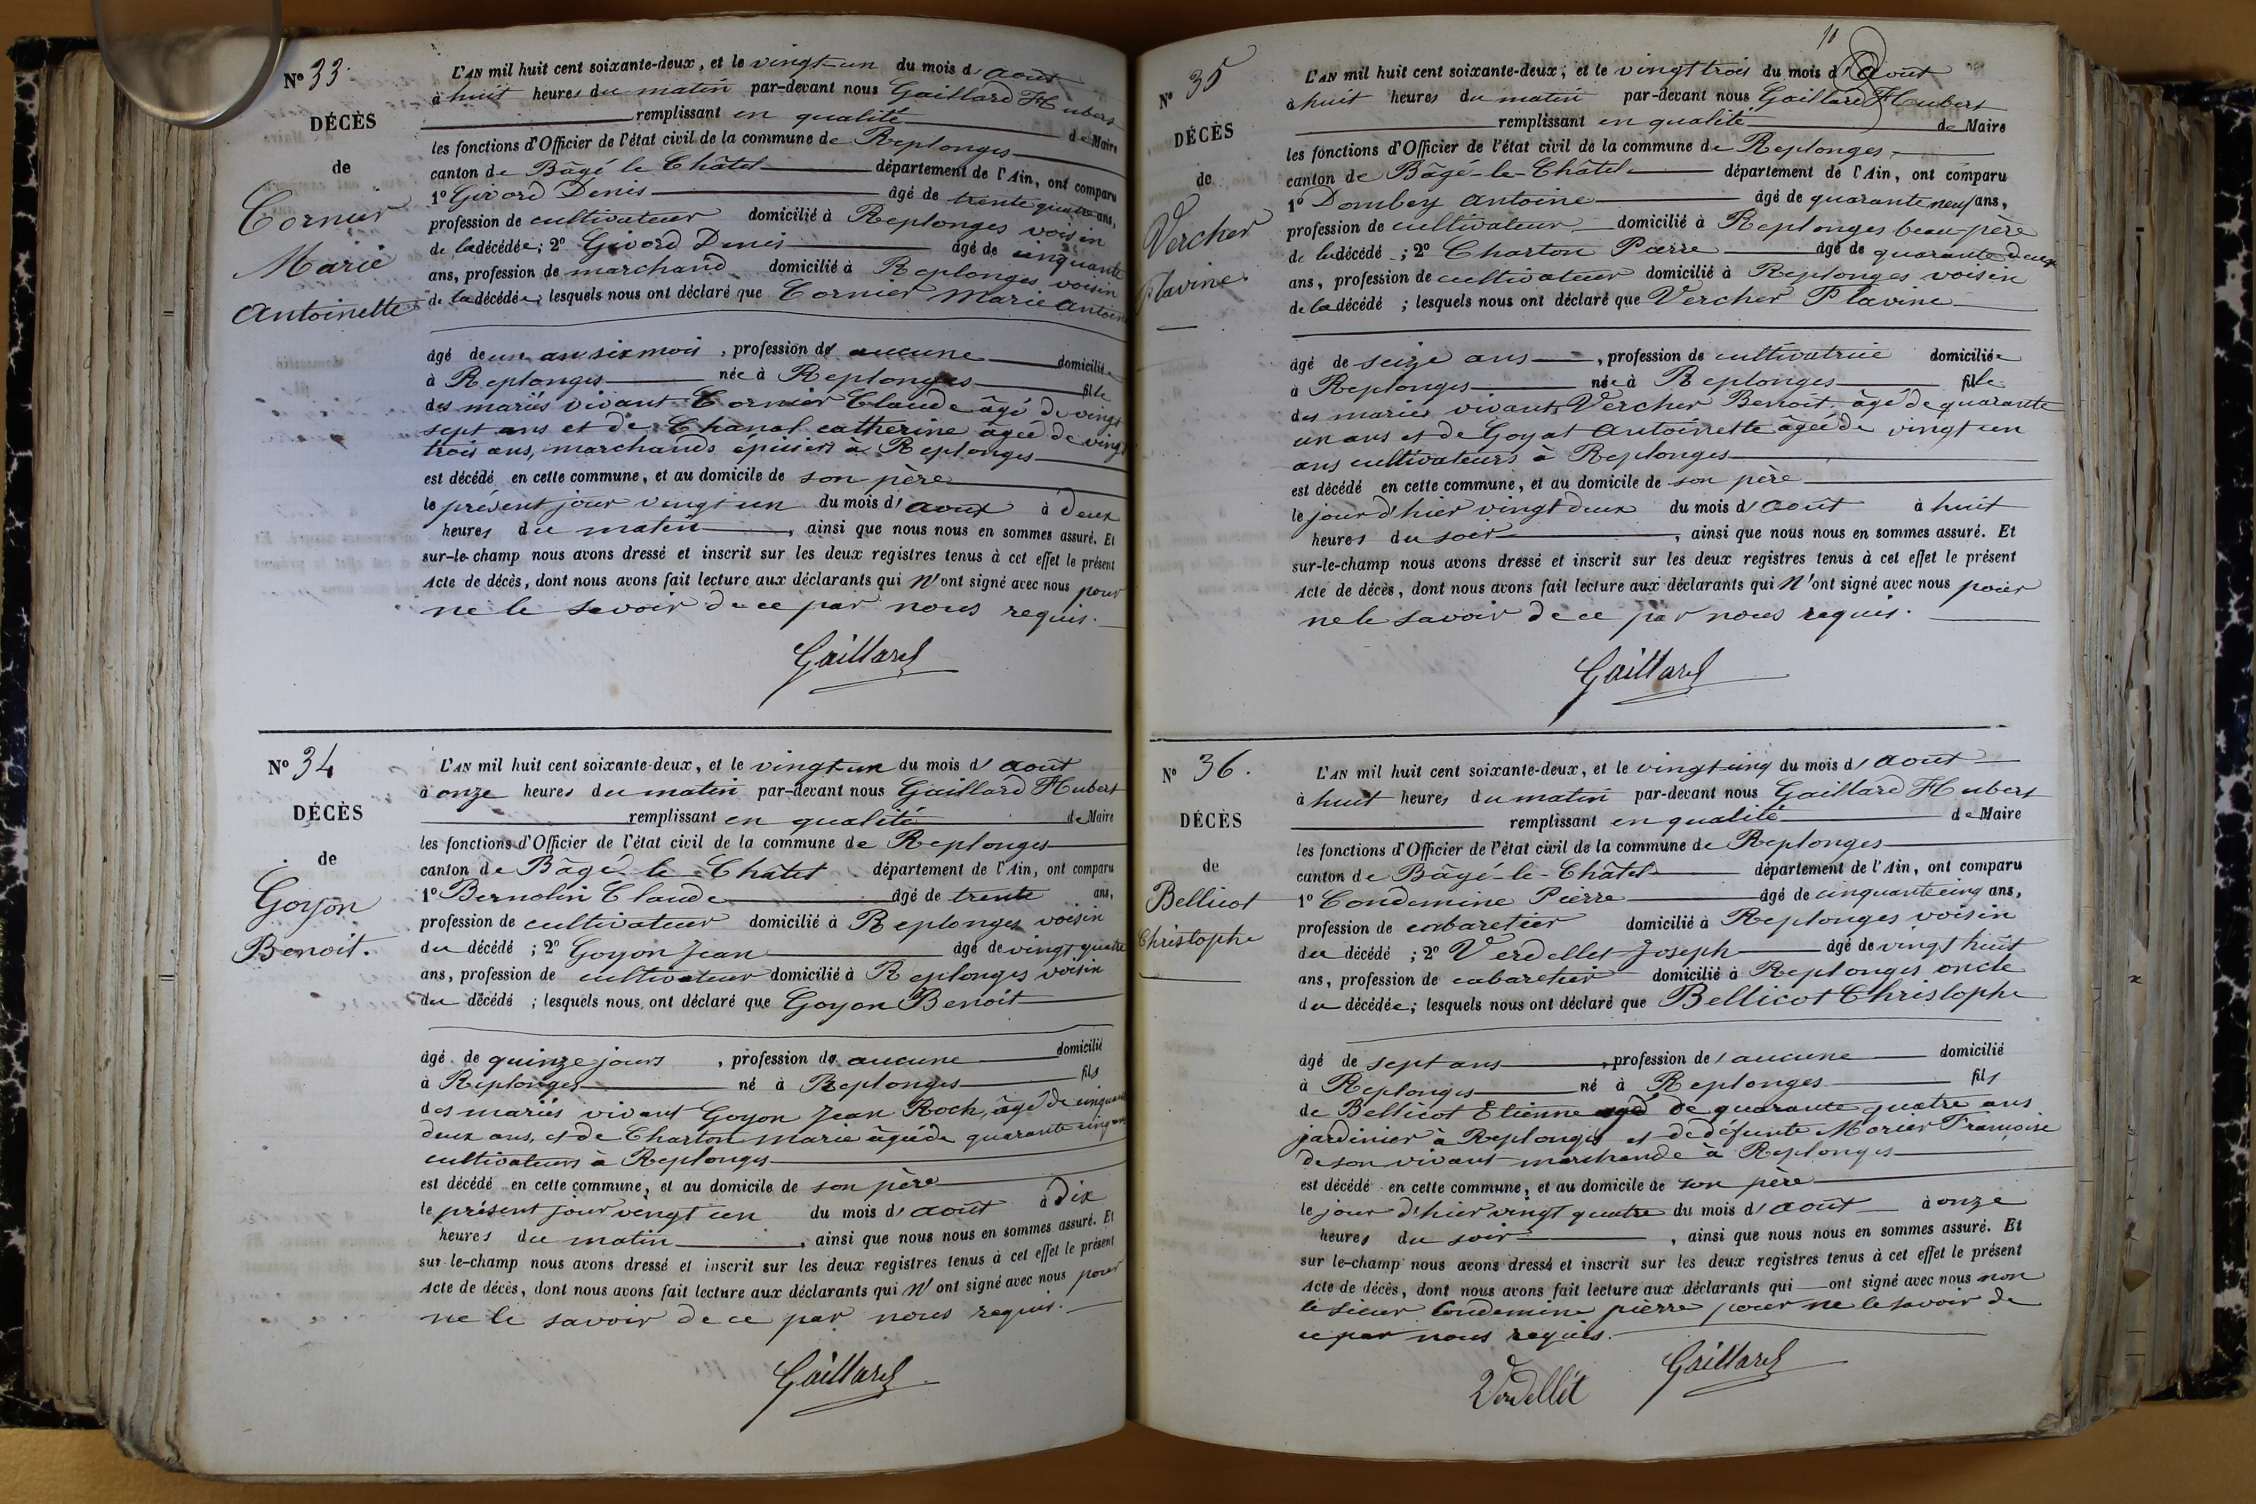 Nº 33.
DÉCÈS
de
Cornier
Marie
Antoinette
L'AN mil huit cent soixante-deux, et le vingt un du mois d'août
à huit heures du matin par-devant nous Gaillard Hubert
remplissant en qualité de Maire
les fonctions d'Officier de l'état civil de la commune de Replonges
canton de Bâgé le Châtel département de l'Ain, ont comparu
1º Givord Denis âgé de trente quatre ans,
profession de cultivateur domicilié à Replonges voisin
de la décédée; 2º Givord Denis âgé de cinquante
ans, profession de marchand domicilié à Replonges voisin
de la décédée; lesquels nous ont déclaré que Cornier Marie Antoin
âgé de un an six mois, profession de aucune domiciliée
à Replonges née à Replonges fille
des mariés vivant Cornier Claude âgé de vingt
sept ans et de Chanal catherine âgée de vingt
trois ans, marchands épiciers à Replonges
est décédé en cette commune, et au domicile de son père
le présent jour vingt un du mois d'août à deux
heures du matin, ainsi que nous nous en sommes assuré. Et
sur-le-champ nous avons dressé et inscrit sur les deux registres tenus à cet effet le présent
Acte de décès, dont nous avons fait lecture aux déclarants qui N'ont signé avec nous pour
ne le savoir de ce par nous requis.
Gaillard
Nº 34
DÉCÈS
de
Goyon
Benoit.
L'AN mil huit cent soixante-deux, et le vingt un du mois d'août
à onze heures du matin par-devant nous Gaillard Hubert
remplissant en qualité de Maire
les fonctions d'Officier de l'état civil de la commune de Replonges
canton de Bâgé-le-Châtel département de l'Ain, ont comparu
1º Bernolin Claude âgé de trente ans,
profession de cultivateur domicilié à Replonges voisin
du décédé; 2º Goyon Jean âgé de vingt quatre
ans, profession de cultivateur domicilié à Replonges voisin
du décédé; lesquels nous ont déclaré que Goyon Benoit
âgé de quinze jours, profession de aucune domicilié
à Replonges né à Replonges fils
des mariés vivant Goyon Jean Roch, âgé de cinquante
deux ans, et de Charton Marie âgée de quarante cinq ans
cultivateurs à Replonges
est décédé en cette commune, et au domicile de son père
le présent jour vingt un du mois d'août à dix
heures du matin, ainsi que nous nous en sommes assuré. Et
sur-le-champ nous avons dressé et inscrit sur les deux registres tenus à cet effet le présent
Acte de décès, dont nous avons fait lecture aux déclarants qui N'ont signé avec nous pour
ne le savoir de ce par nous requis.
Gaillard
Nº 35
DÉCÈS
de
Vercher
Flavine
L'AN mil huit cent soixante-deux, et le vingt trois du mois d'août
à huit heures du matin par-devant nous Gaillard Hubert
remplissant en qualité de Maire
les fonctions d'Officier de l'état civil de la commune de Replonges
canton de Bâgé-le-Châtel département de l'Ain, ont comparu
1º Dombey Antoine âgé de quarante neuf ans,
profession de cultivateur domicilié à Replonges beau-père
de la décédé; 2º Charton Pierre âgé de quarante deux
ans, profession de cultivateur domicilié à Replonges voisin
de la décédé; lesquels nous ont déclaré que Vercher Flavine
âgé de seize ans, profession de cultivatrice domiciliée
à Replonges née à Replonges fille
des mariés vivant Vercher Benoit âgé de quarante
un ans et de Goyat Antoinette âgée de vingt un
ans cultivateurs à Replonges
est décédé en cette commune, et au domicile de son père
le jour d'hier vingt deux du mois d'août à huit
heures du soir, ainsi que nous nous en sommes assuré. Et
sur-le-champ nous avons dressé et inscrit sur les deux registres tenus à cet effet le présent
Acte de décès, dont nous avons fait lecture aux déclarants qui N'ont signé avec nous pour
ne le savoir de ce par nous requis.
Gaillard
Nº 36.
DÉCÈS
de
Bellicot
Christophe
L'AN mil huit cent soixante-deux, et le vingt cinq du mois d'août
à huit heures du matin par-devant nous Gaillard Hubert
remplissant en qualité de Maire
les fonctions d'Officier de l'état civil de la commune de Replonges
canton de Bâgé-le-Châtel département de l'Ain, ont comparu
1º Condemine Pierre âgé de cinquante cinq ans,
profession de cabaretier domicilié à Replonges voisin
du décédé; 2º Verdellet Joseph âgé de vingt huit
ans, profession de cabaretier domicilié à Replonges oncle
du décédée; lesquels nous ont déclaré que Bellicot Christophe
âgé de sept ans, profession de aucune domicilié
à Replonges né à Replonges fils
de Bellicot Etienne agé de quarante quatre ans
jardinier à Replonges et de défunte Morier Françoise
de son vivant marchande à Replonges
est décédé en cette commune, et au domicile de son père
le jour d'hier vingt quatre du mois d'août à onze
heures du soir, ainsi que nous nous en sommes assuré. Et
sur le-champ nous avons dressé et inscrit sur les deux registres tenus à cet effet le présent
Acte de décès, dont nous avons fait lecture aux déclarants qui ont signé avec nous non
le sieur Condemine pierre pour ne le savoir de
ce par nous requis.
Gaillard
Verdellet